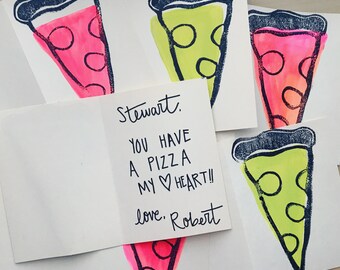 Stewart,
YOU HAVE
A PIZZA
MY ♡ HEART!!
love,
Robert